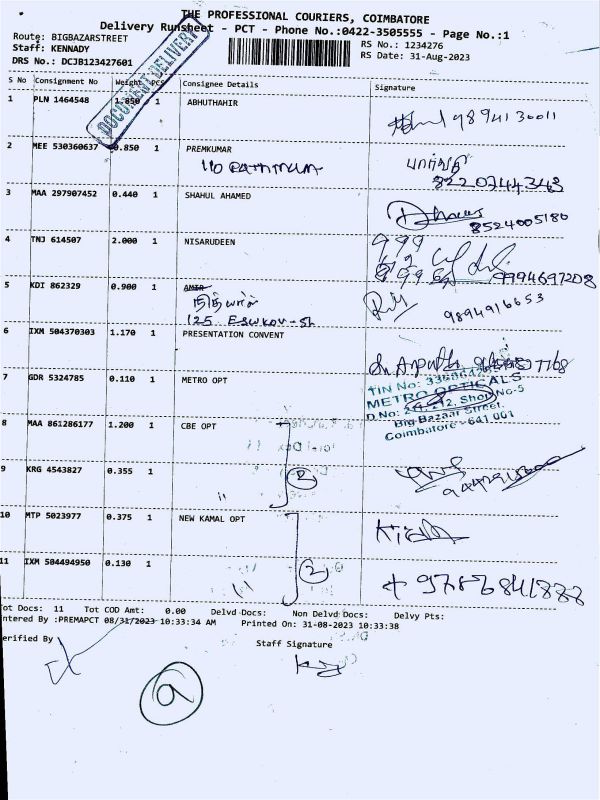 THE PROFESSIONAL COURIERS, COIMBATORE
Delivery Runsheet - PCT - Phone No.:0422-3505555 - Page No.:1
Route: BIGBAZARSTREET
RS No.: 1234276
Staff: KENNADY
RS Date: 31-Aug-2023
DRS No.: DCJB123427601
DOCUMENT DELIVERY
S No Consignment No Weight PCS Consignee Details Signature
1 PLN 1464548 1.850 1 ABHUTHAHIR
9894130011
2 MEE 530360637 0.850 1 PREMKUMAR
8220744343
3 MAA 297907452 0.440 1 SHAHUL AHAMED
8524005180
4 TNJ 614507 2.000 1 NISARUDEEN
9994697208
5 KDI 862329 0.900 1 AMIR
125
9894916653
6 IXM 504370303 1.170 1 PRESENTATION CONVENT
7 GDR 5324785 0.110 1 METRO OPT
TIN No:
METRO OPTICALS
D.No: Shop No-5
Big Bazaar Street,
Coimbatore - 641 001
8 MAA 861286177 1.200 1 CBE OPT
9 KRG 4543827 0.355 1
"
2
10 MTP 5023977 0.375 1 NEW KAMAL OPT
11 IXM 504494950 0.130 1
"
2
9786841888
Tot Docs: 11 Tot COD Amt: 0.00 Delvd Docs: Non Delvd Docs: Delvy Pts:
ntered By :PREMAPCT 08/31/2023 10:33:34 AM Printed On: 31-08-2023 10:33:38
erified By
Staff Signature
9